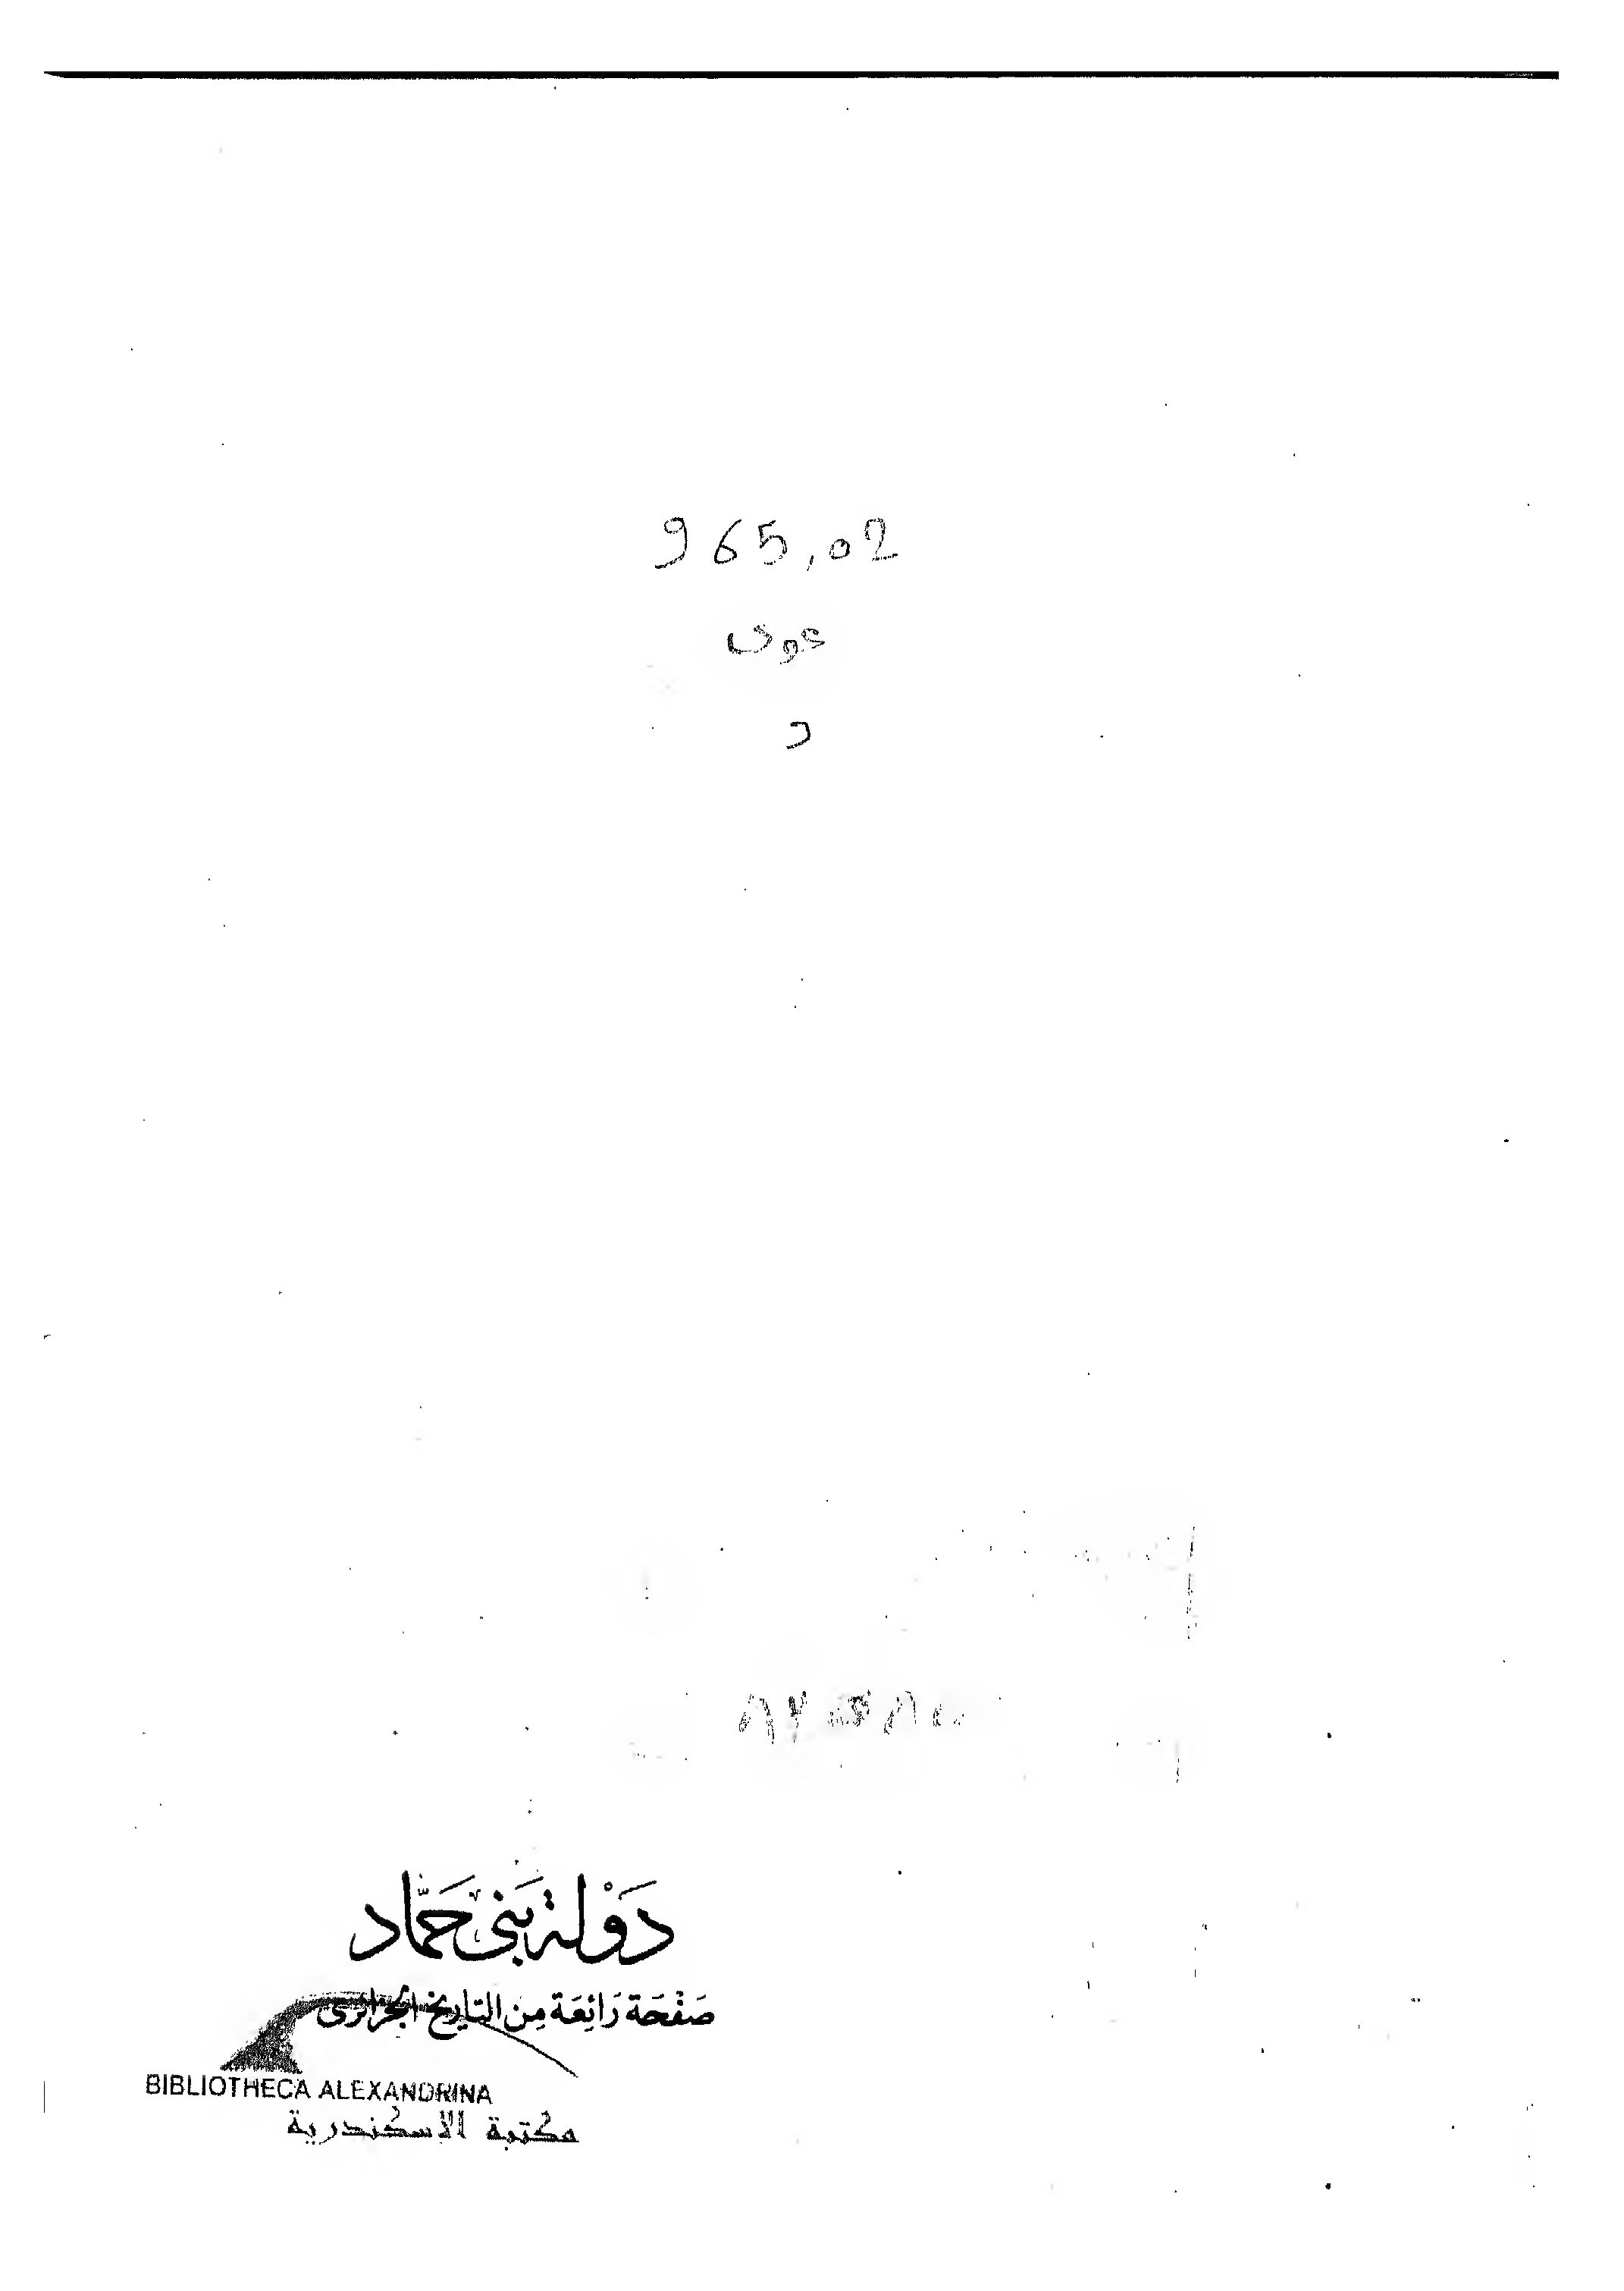 965,02
عوى
د
دَوْلة بَني حَمَّاد
صَفْحَة رَائِعَة مِن التاريخ الجزائرى
BIBLIOTHECA ALEXANDRINA
مكتبة الإسكندرية